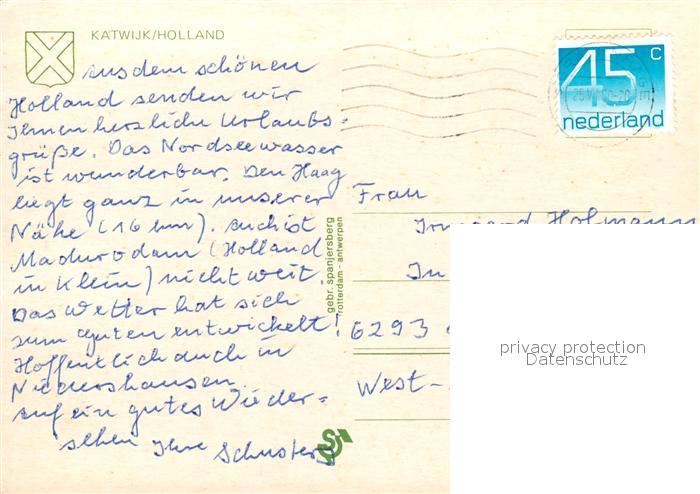 KATWIJK/HOLLAND
Aus dem schönen
Holland senden wir
Ihnen herzliche Urlaubs-
grüße. Das Nordseewasser
ist wunderbar. Den Haag
liegt ganz in unserer
Nähe (16 km). Auch ist
Madurodam (Holland
in Klein) nicht weit.
Das Wetter hat sich
zum guten entwickelt!
Hoffentlich auch in
Niedershausen.
Auf ein gutes Wieder=
sehen Ihre Schusters
gebr. spanjersberg
rotterdam - antwerpen
45 c
nederland
Frau
Irmgard Hofmann
In
6293
West-
privacy protection
Datenschutz